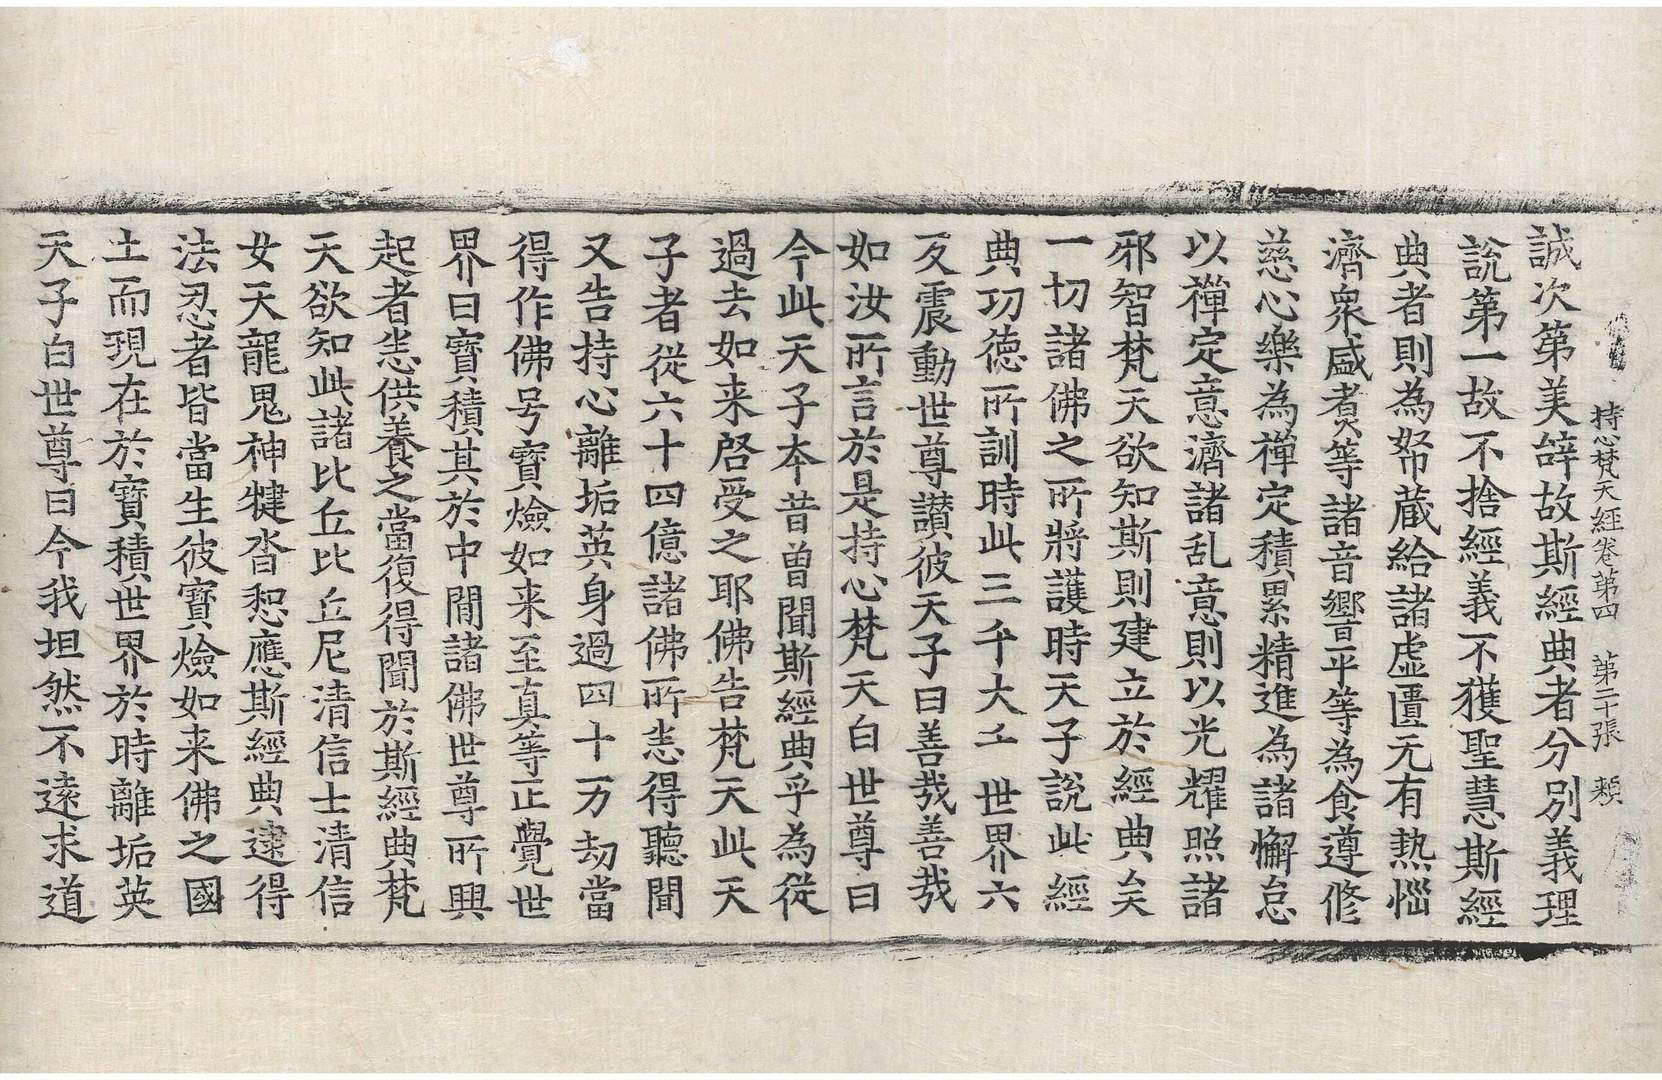 持心梵天經卷第四　第二十張　類
誠次第美辝故斯經典者分別義理
說第一故不捨經義不獲聖慧斯經
典者則為帑蔵給諸虛匱无有熱惱
濟衆慼煑等諸音響平等為食遵修
慈心樂為禪定積累精進為諸懈怠
以禪定意濟諸乱意則以光耀照諸
邪智梵天欲知斯則建立於經典矣
一切諸佛之所將護時天子說此經
典㓛德所訓時此三千大千世界六
反震動世尊讃彼天子曰善㢤善㢤
如汝所言於是持心梵天白世尊曰
今此天子夲昔曾聞斯經典乎為從
過去如来啓受之耶佛告梵天此天
子者從六十四億諸佛所悉得聽聞
又告持心離垢英身過四十万劫當
得作佛号寶熻如来至真等正覺世
界曰寶積其於中閒諸佛世尊所興
起者悉供養之當復得聞於斯經典梵
天欲知此諸比丘比丘尼清信士清信
女天龍鬼神揵沓惒應斯經典逮得
法忍者皆當生彼寶熻如来佛之國
土而現在於寶積世界於時離垢英
天子白世尊曰今我坦然不遠求道